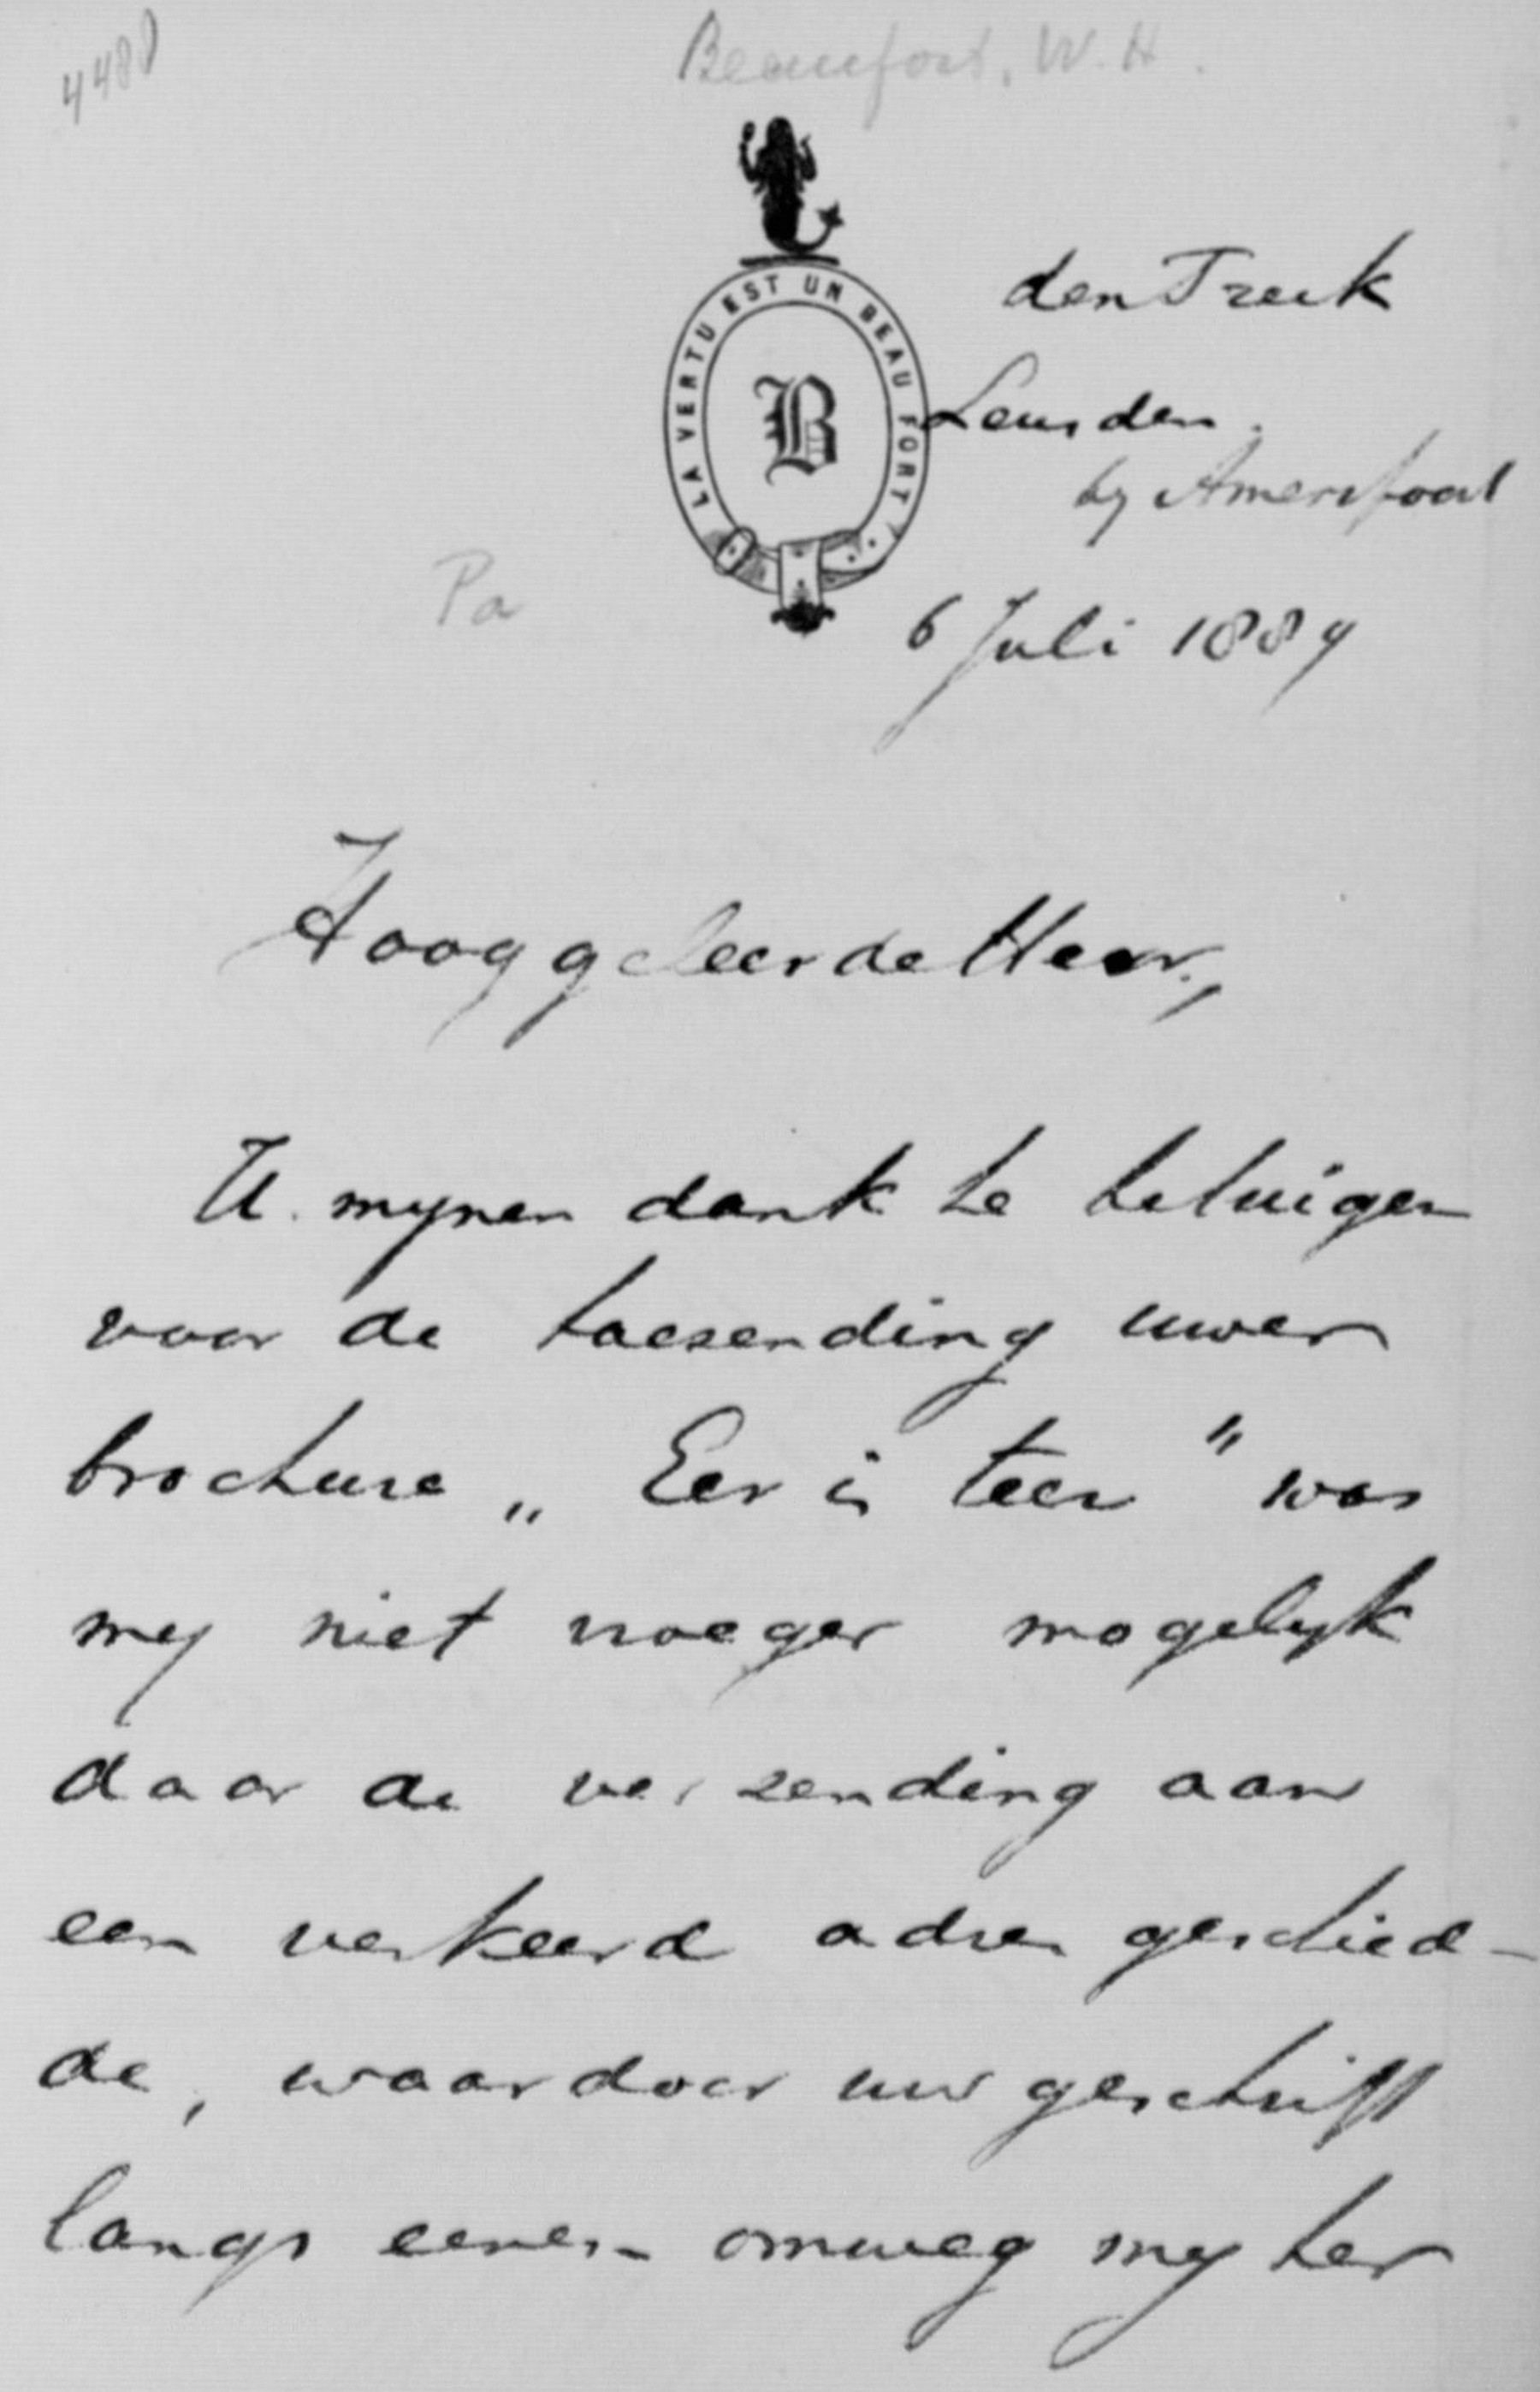 4488
Beaufort, W. H.
LA VERTU EST UN BEAU FORT
B
den Treek
Leusden.
by Amersfoort
Pa
6 Juli 1889
Hooggeleerde Heer,
U mynen dank te betuigen
voor de toezending uwer
brochure „Eer is teer" was
my niet vroeger mogelyk
daar de verzending aan
een verkeerd adres geschied-
de, waardoor uw geschrift
langs eenen omweg my ter